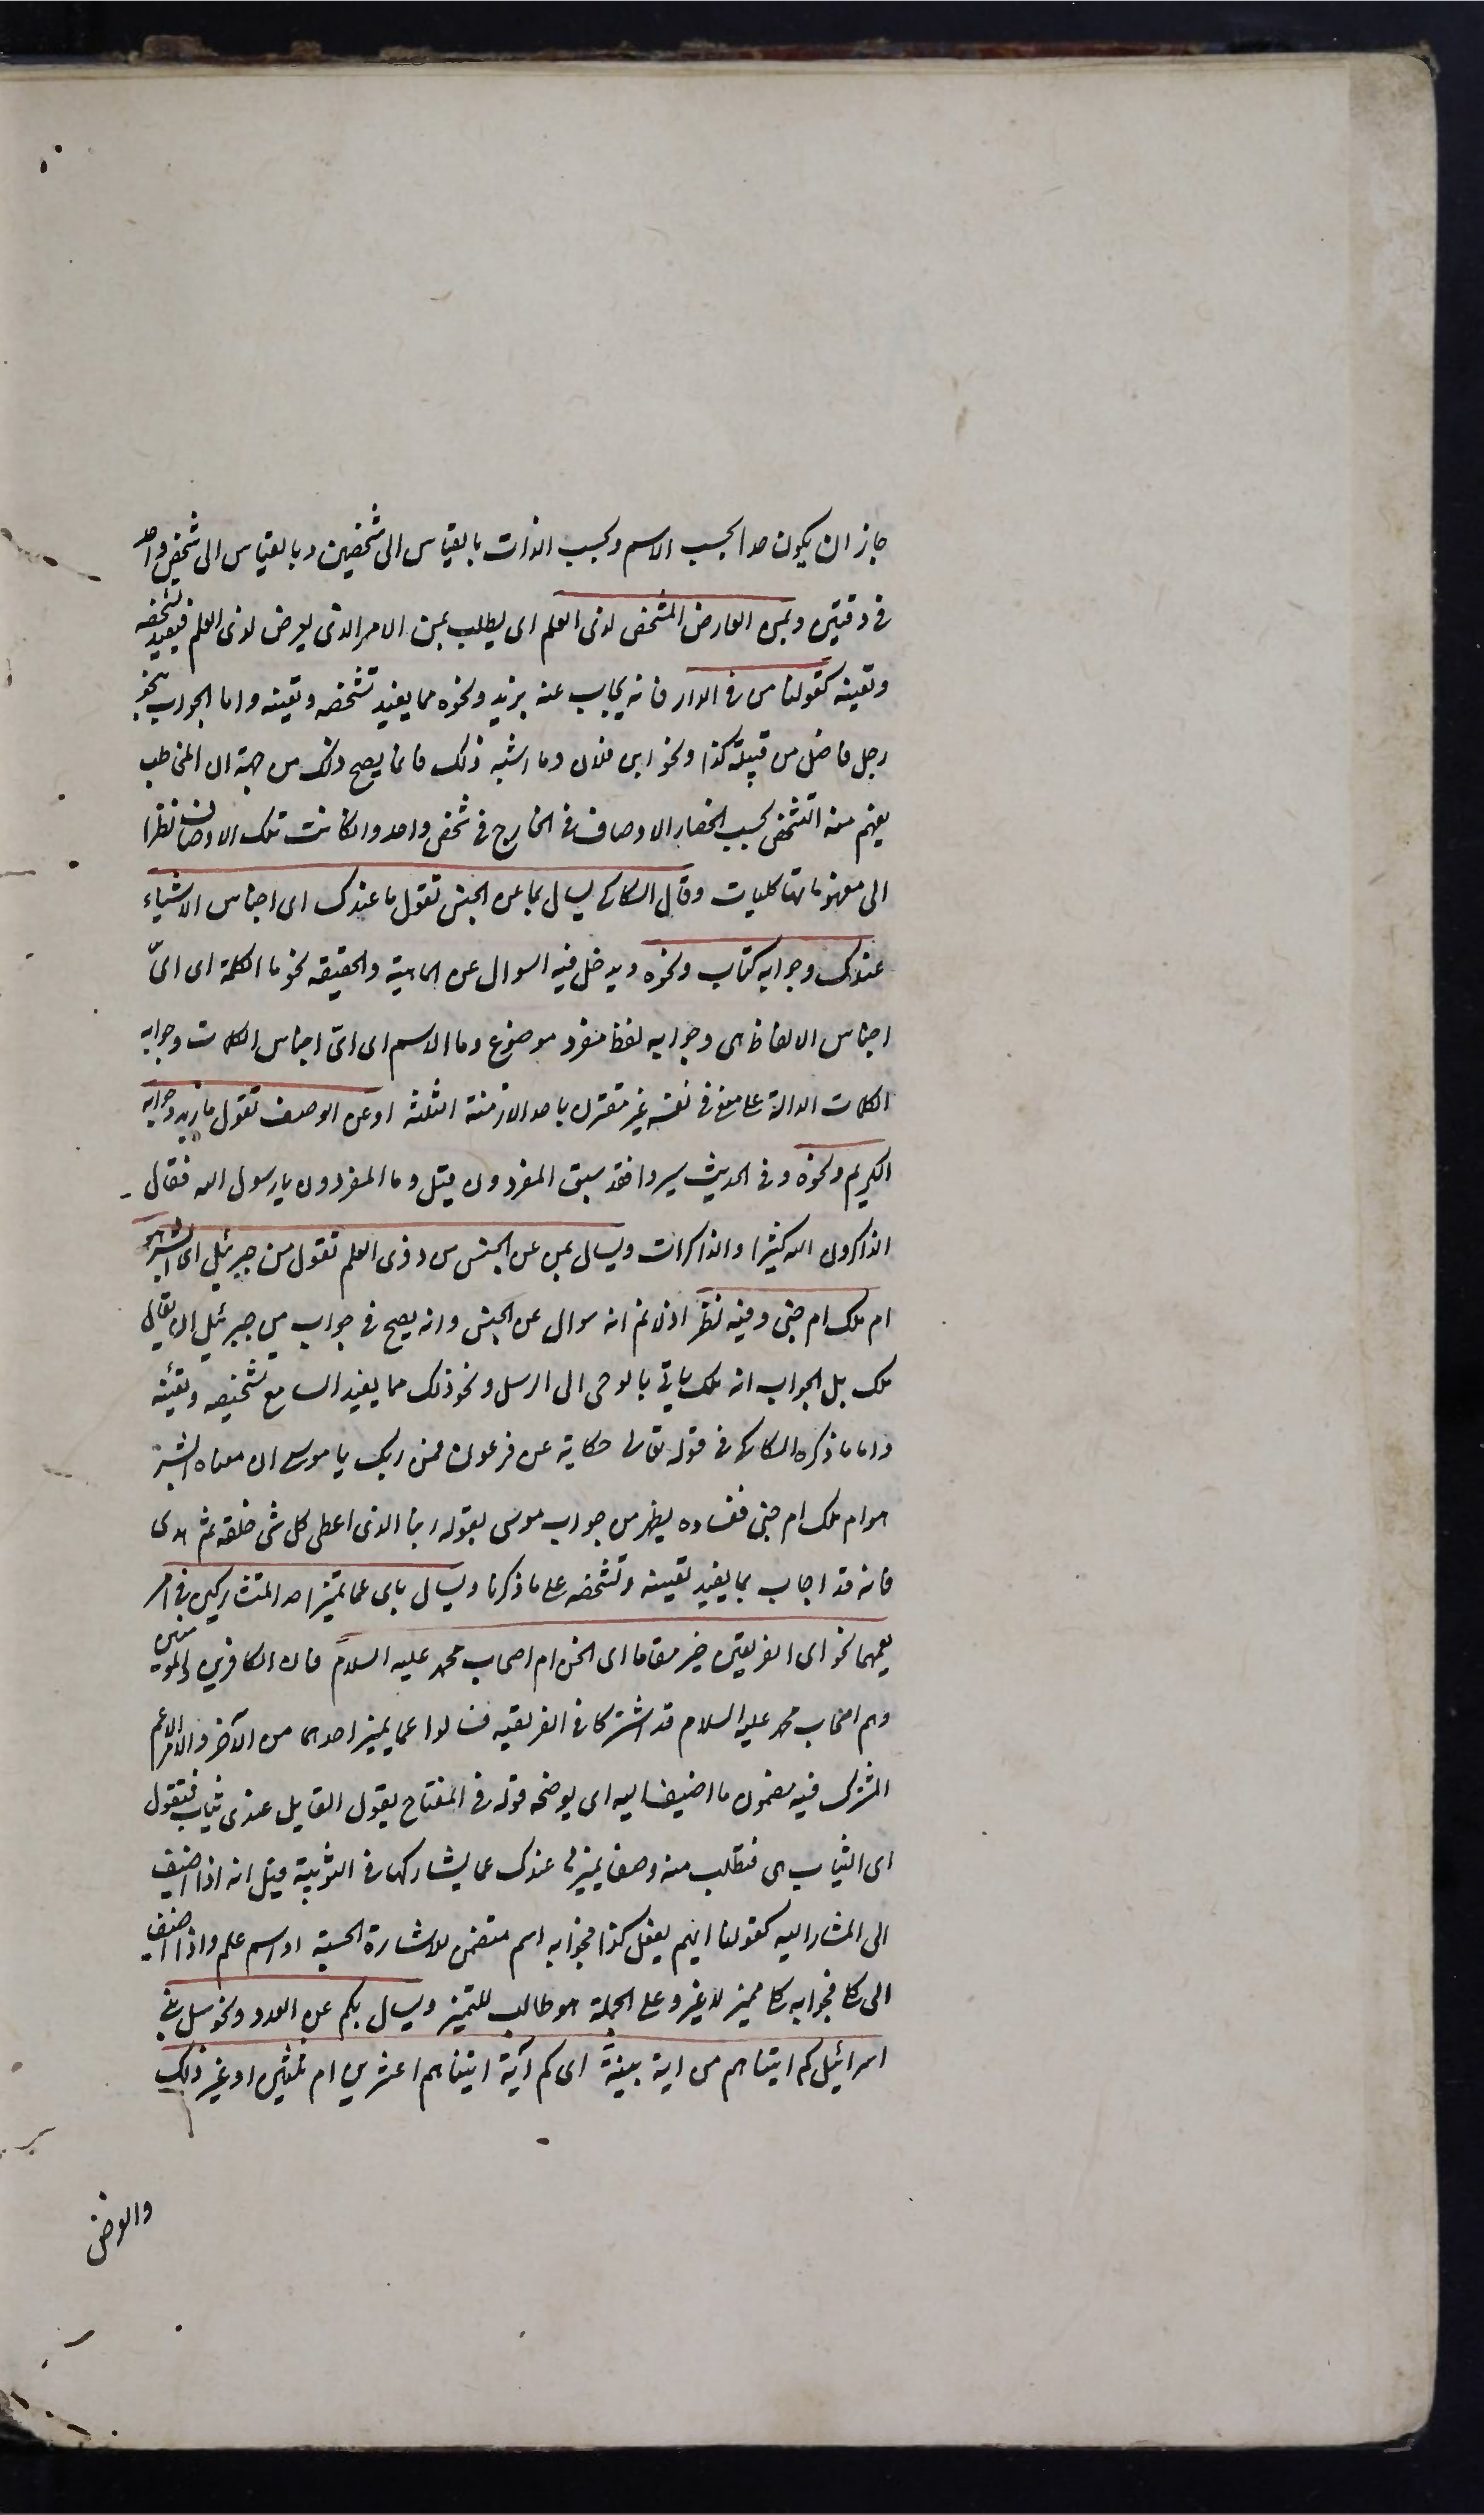 جاز ان يكون حدا بحسب الاسم وبحسب الذات بالقياس الى شخصين وبالقياس الى شخص واحد
فى وقتين وبمن العارض المشخص لذى العلم اى يطلب بمن الامر الذى يعرض لذى العلم فيفيد تشخصه
وتعينه كقولنا من فى الدار فانه يجاب عنه بزيد ونحوه مما يفيد تشخصه وتعينه واما الجواب بنحو
رجل فاضل من قبيلة كذا ونحو ابن فلان وما اشبه ذلك فانما يصح ذلك من جهة ان المخاطب
يفهم منه التشخص بحسب انحصار الاوصاف فى الخارج فى شخص واحد وان كانت تلك الاوصاف نظرا
الى مفهوماتها كليات وقال السكاكى يسال بما عن الجنس تقول ما عندك اى اجناس الاشياء
عندك وجوابه كتاب ونحوه ويدخل فيه السوال عن الماهية والحقيقه نحو ما الكلمة اى اىّ
اجناس الالفاظ هى وجوابه لفظ مفرد موضوع وما الاسم اى اىّ اجناس الكلمات وجوابه
الكلمات الدالة على معنى فى نفسه غير مقترن باحد الازمنة الثلثه او عن الوصف تقول ما زيد وجوابه
الكريم ونحوه وفى الحديث سيروا فقد سبق المفردون قيل وما المفردون يا رسول الله فقال
الذاكرون الله كثيرا والذاكرات ويسال بمن عن الجنس من ذوى العلم تقول من جبرئيل اى ابشر هو
ام ملك ام جنى وفيه نظر اذ لا نم انه سوال عن الجنس وانه يصح فى جواب من جبرئيل ان يقال
ملك بل الجواب انه ملك ياتى بالوحى الى الرسل ونحو ذلك مما يفيد السامع تشخيصه وتعينه
واما ما ذكره السكاكى فى قوله تعالى حكاية عن فرعون فمن ربك يا موسى ان معناه ابشر
هو ام ملك ام جنى ففساده يظهر من جواب موسى بقوله ربنا الذى اعطى كل شى خلقه ثم هدى
فانه قد اجاب بما يفيد تعينه وتشخصه على ما ذكرنا ويسال باى عما يميز احد المتشاركين فى امر
يعمهما نحو اى الفريقين خير مقاما اى انحن ام اصحاب محمد عليه السلام فان الكافرين والمومنين
وهم اصحاب محمد عليه السلام قد اشتركا فى الفريقيه فسالوا عما يميز احدهما من الآخر والامر الاعم
المشترك فيه مضمون ما اضيف اليه اى يوضحه قوله فى المفتاح يقول القايل عندى ثياب فتقول
اى الثياب هى فتطلب منه وصفا يميزها عندك عما يشاركها فى الثوبية قيل انه اذا اضيف
الى المشار اليه كقولنا ايهم يفعل كذا فجوابه اسم متضمن للاشارة الحسية او اسم علم واذا اضيف
الى كلى فجوابه كلى مميز لا غير وعلى الجملة هو طالب للتميز ويسال بكم عن العدد ونحو سل بنى
اسرائيل كم اتيناهم من اية بينة اى كم آية اتيناهم اعشرين ام ثلثين او غير ذلك
والغرض